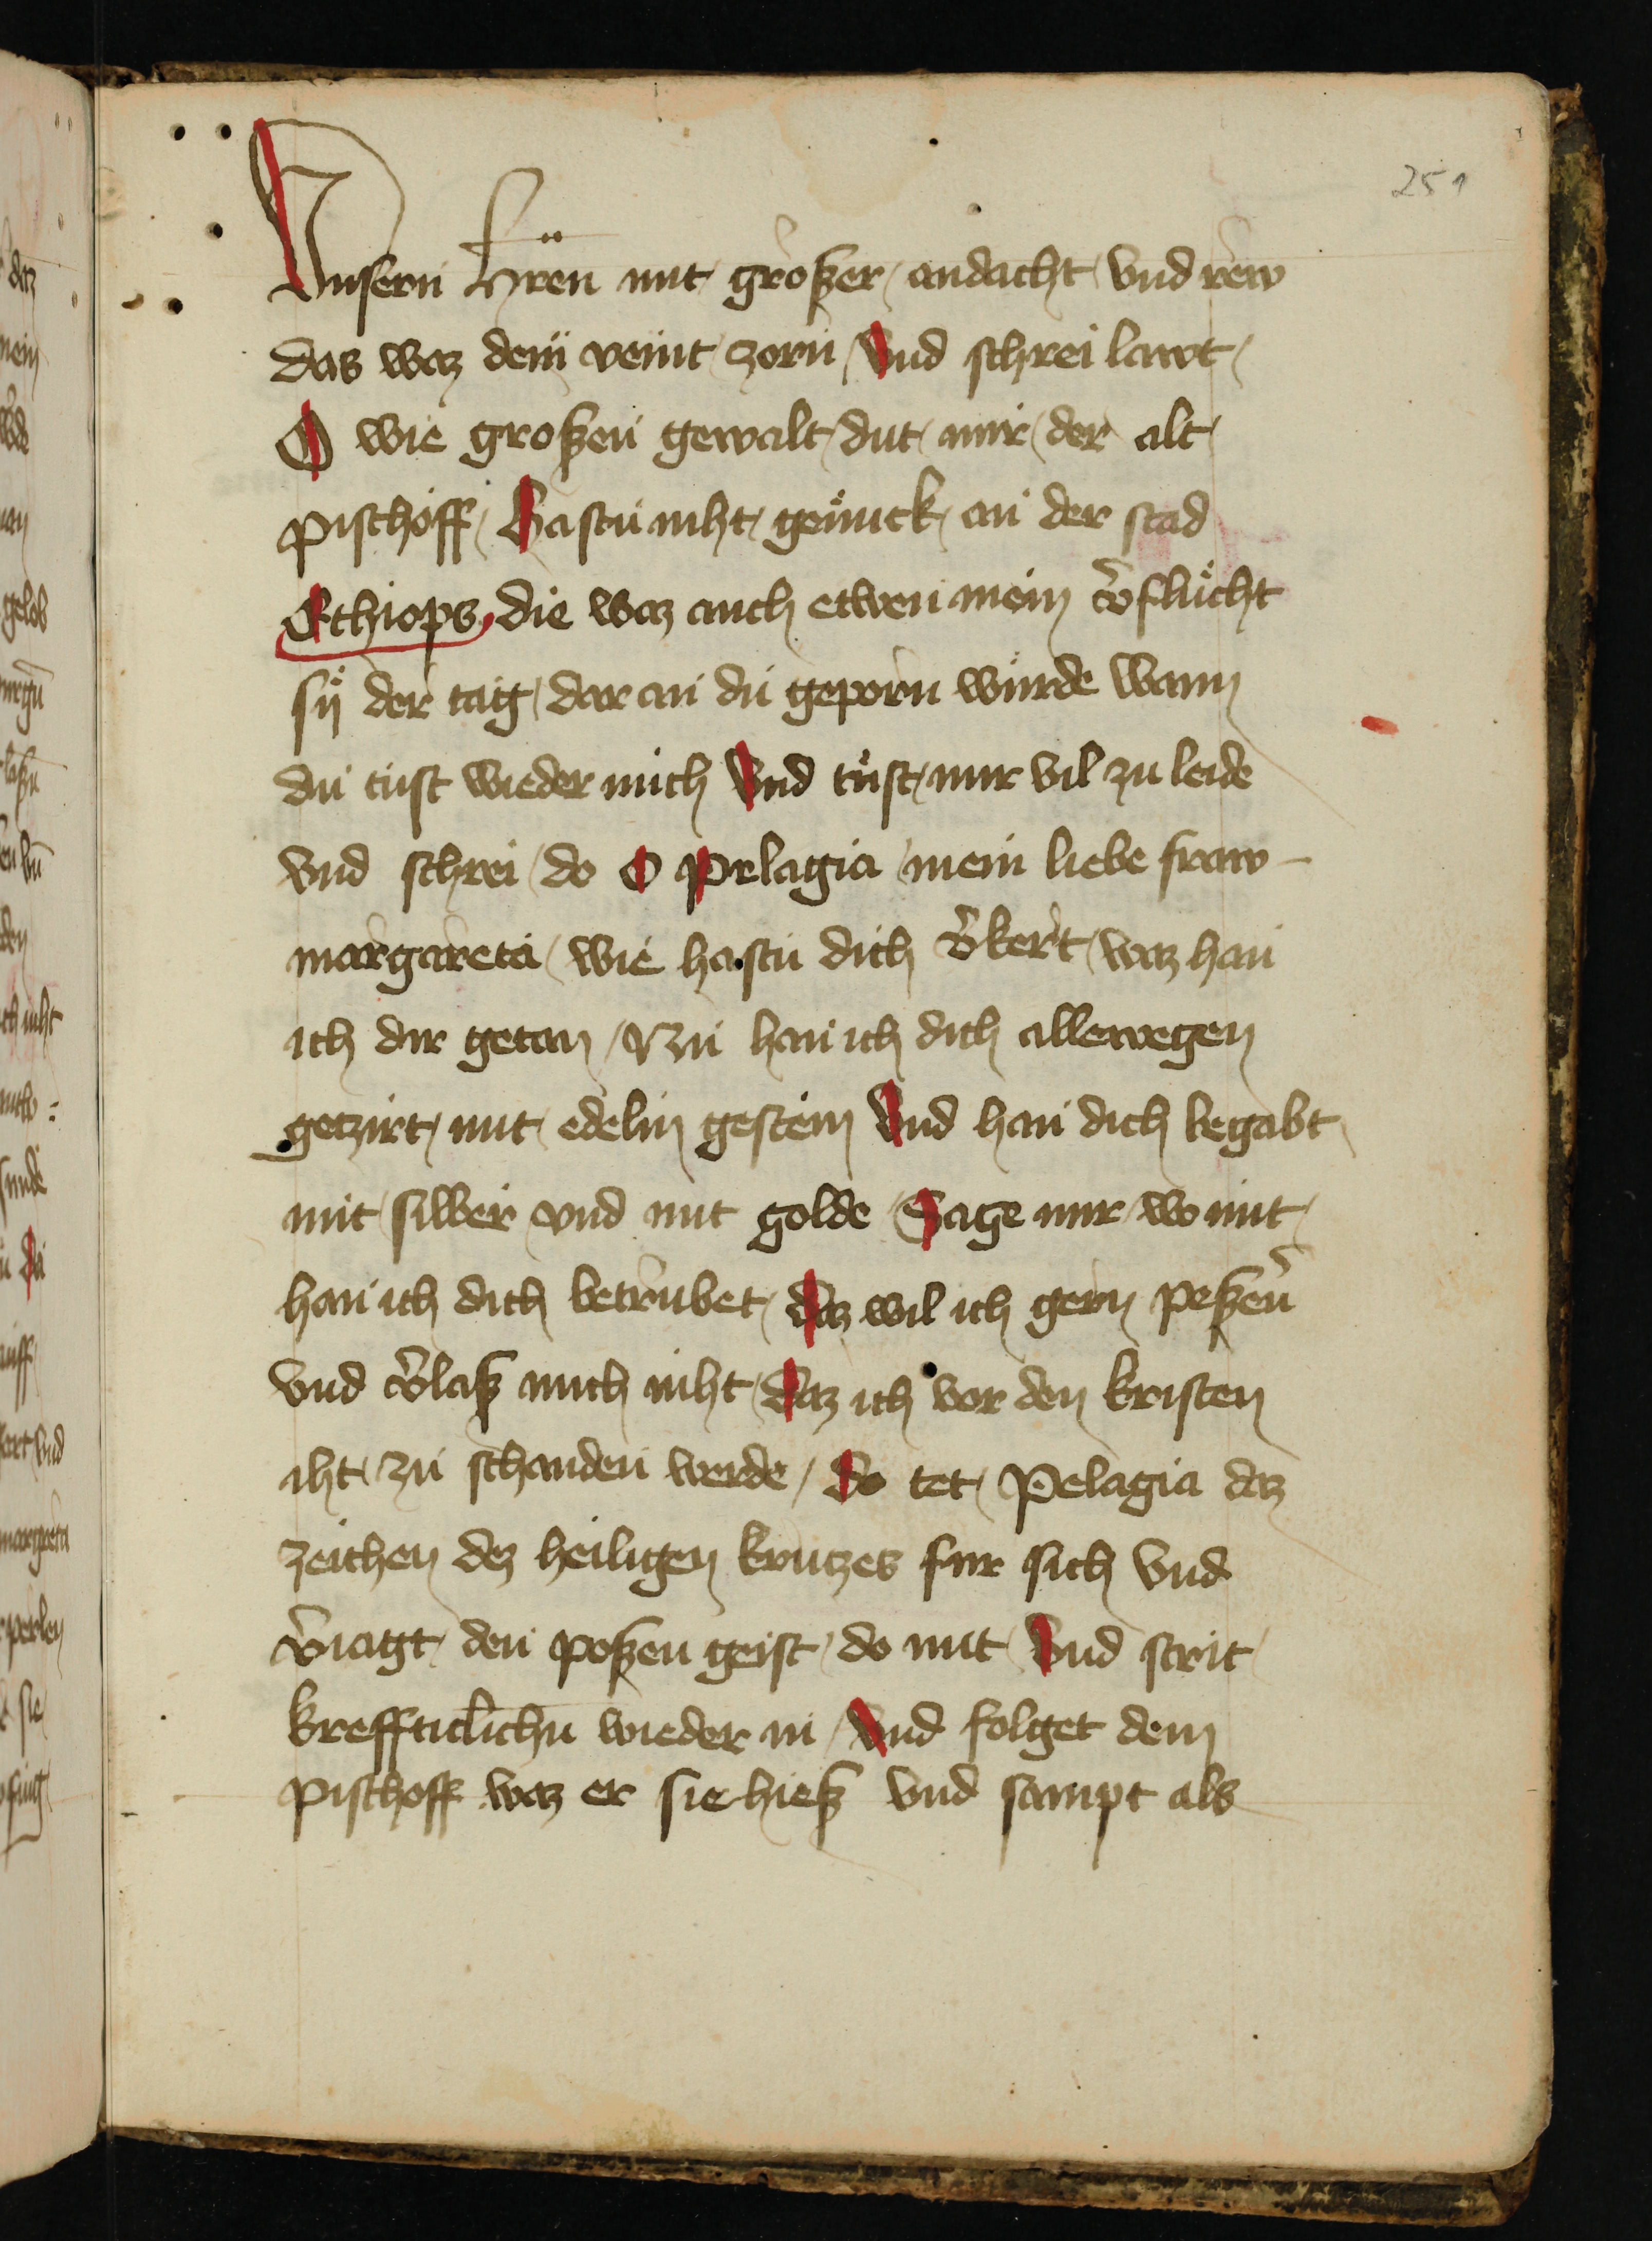 251
Vnsern hren mit großer andacht vnd rew
das waz dem veint zorn Vnd schrei lawt
O wie großen gewalt dut mir der alt
pischoff Hastu niht genuck an der stad
Ethiops die waz auch etwen mein v̄flucht
sy der tag dar an du geporn wurde wann
du tust wieder mich Vnd tust mir vil zu leide
vnd schrei do O Pelagia mein liebe fraw
margareta wie hastu dich v̄kert waz han
ich dir getan Nu han ich dich allewegen
getzirt mit edelin gestein Vnd han dich begabt
mit silber vnd mit golde Sage mir wo mit
han ich dich betrubet daz wil ich gern peßern
vnd v̄laß mich niht daz ich vor den kristen
iht zu schanden werde Do tet Pelagia daz
zeichen dez heiligen krutzes fur sich vnd
v̄iagt den poßen geist do mit Vnd strit
krefftichlichn wieder in Vnd folget dem
pischoff waz er sie hieß vnd sampt als